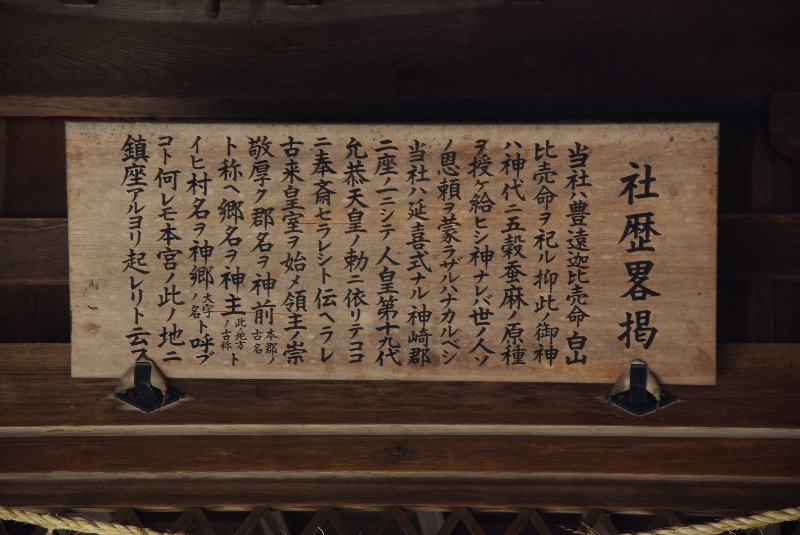 社歴畧掲
当社ハ豊遠迦比売命白山
比売命ヲ祀ル抑此ノ御神
ハ神代ニ五穀蚕麻ノ原種
ヲ授ケ給ヒシ神ナレバ世ノ人ソ
ノ恩頼ヲ蒙ラザルハナカルベシ
当社ハ延喜式ナル神崎郡
二座ノ一ニシテ人皇第十九代
允恭天皇ノ勅ニ依リテココ
ニ奉斎セラレシト伝ヘラレ
古来皇室ヲ始メ領主ノ崇
敬厚ク郡名ヲ神前本郡ノ古名
ト称ヘ郷名ヲ神主此ノ地方ノ古称ト
イヒ村名ヲ神郷大字ノ名ト呼ブ
コト何レモ本宮ノ此ノ地ニ
鎮座アルヨリ起レリト云フ